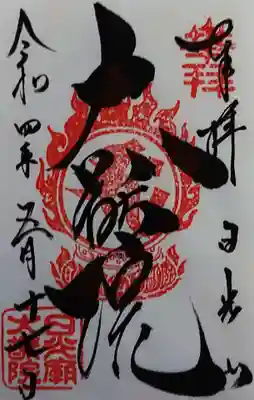 奉拝 日光山
大猷院
令和四年五月十七日
日光廟
大猷院